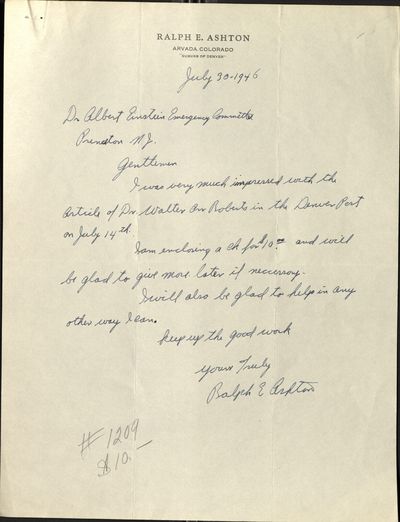 RALPH E. ASHTON
ARVADA, COLORADO
"SUBURB OF DENVER"
July 30-1946
Dr Albert Einstein Emergency Committee
Princeton N.J.
Gentlemen
I was very much impressed with the
article of Dr Walter Orr Roberts in the Denver Post
on July 14th.
I am enclosing a ck for $10.00 and will
be glad to give more later if necessary.
I will also be glad to help in any
other way I can.
Keep up the good work
Yours Truly
Ralph E Ashton
# 1209
$10.—